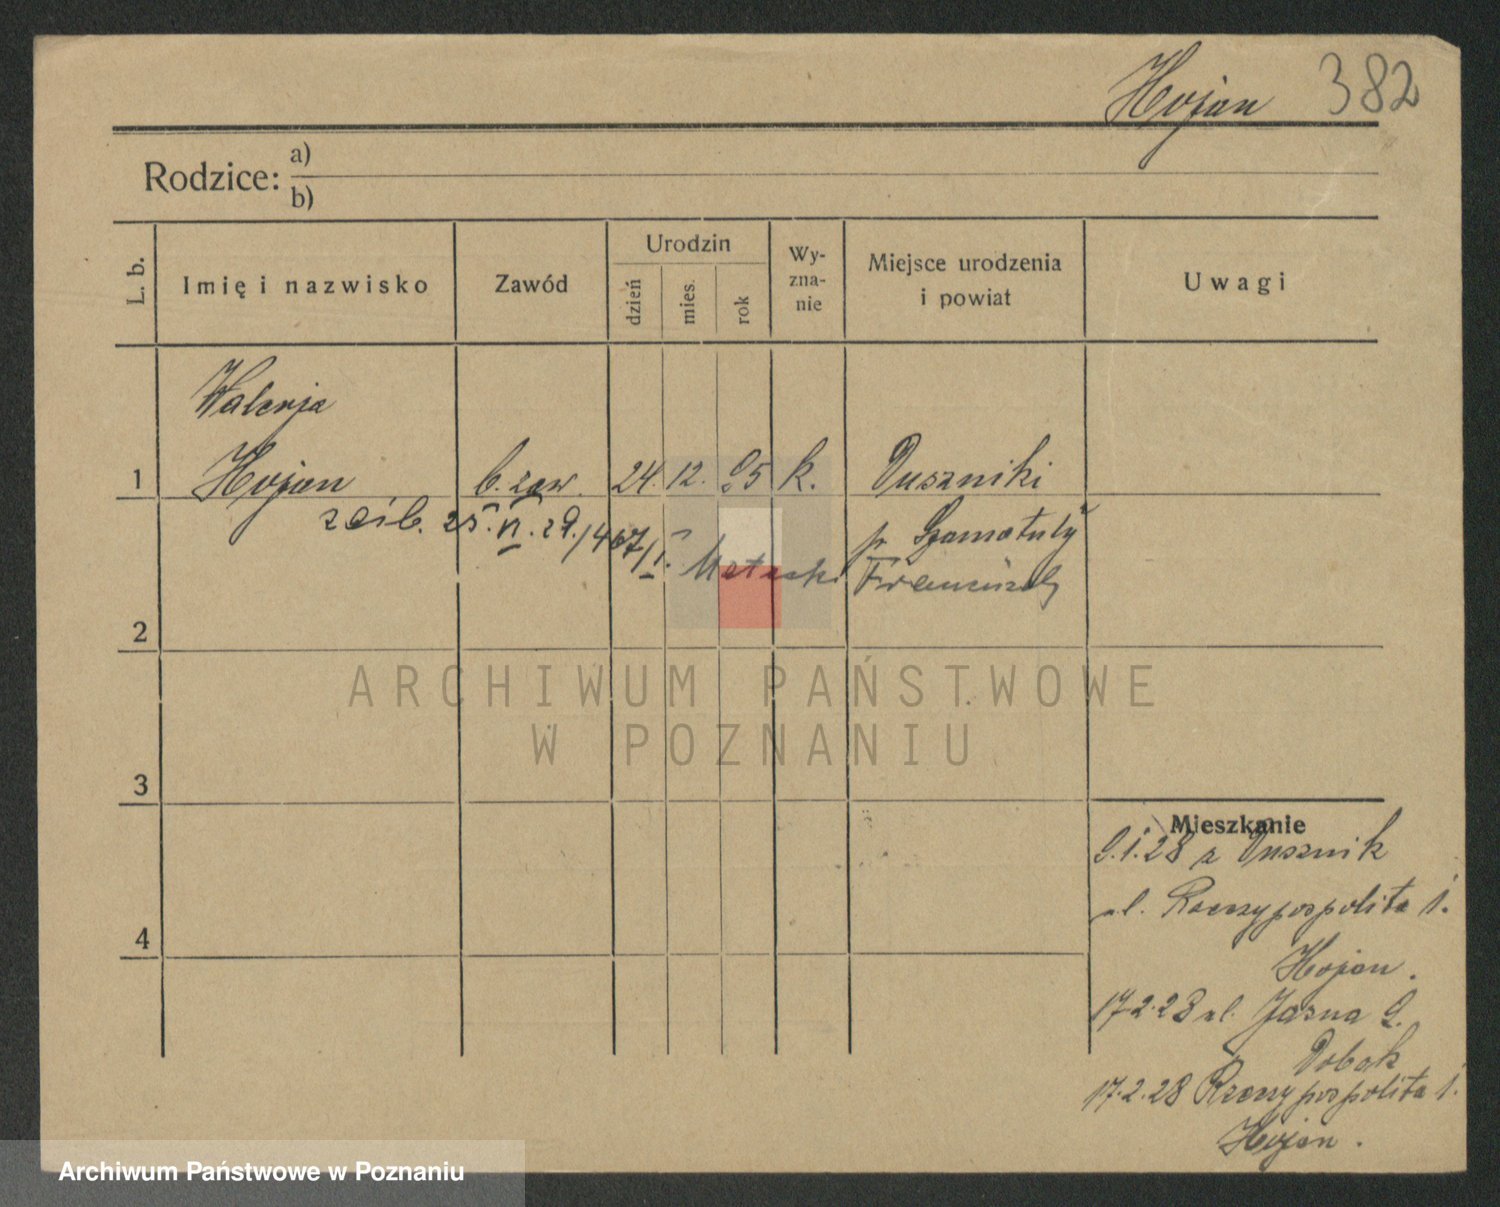 Hojan 382
Rodzice: a)
b)
L. b. Imię i nazwisko Zawód Urodzin dzień mies. rok Wy-zna-nie Miejsce urodzenia i powiat Uwagi
Walerja
1 Hojan b. zaw. 24. 12. 05 k. Duszniki
zaśb. 25. VI. 29. /467/I. p. Szamotuły
Franciszek
2
ARCHIWUM PAŃSTWOWE
W POZNANIU
3
Mieszkanie
9.1.28 z Dusznik
ul. Rzeczypospolita 1.
4
Hojan.
17.2.28 ul. Jasna 9.
Dobak
17.2.28 Rzeczypospolita 1.
Hojan.
Archiwum Państwowe w Poznaniu